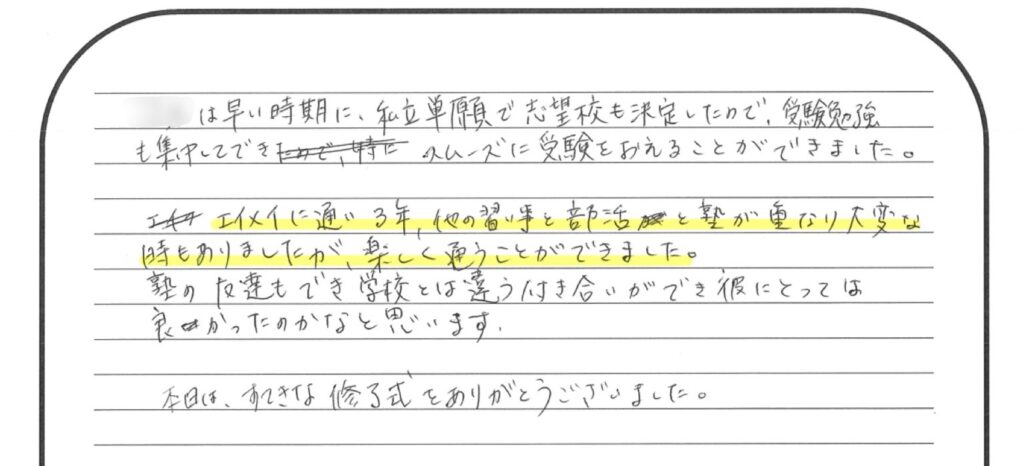 は早い時期に、私立単願で志望校も決定したので、受験勉強
も集中してでき スムーズに受験をおえることができました。
エイメイに通い3年、他の習い事と部活と塾が重なり大変な
時もありましたが、楽しく通うことができました。
塾の友達もでき学校とは違う付き合いができ彼にとっては
良かったのかなと思います.
本日は、すてきな修了式をありがとうございました。